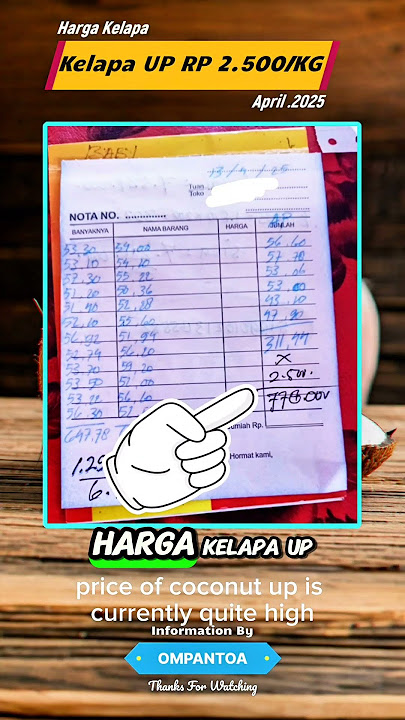 Harga Kelapa
Kelapa UP RP 2.500/KG
April .2025
BABY
Tuan
Toko
NOTA NO.
BANYAKNYA NAMA BARANG HARGA JUMLAH
53.30 54,00 56.60
53.10 54,10 57.70
52.30 55.22 53.06
51.20 50.36 53.00
51.40 52.28 43.10
52.10 55.60 47.90
56.92 51.94 311,44
52.74 56.20 x
53.70 59.20 2.500.
53.50 51,00 778.000
53.22 56.10
56.30
647.78
Jumlah Rp.
Hormat kami,
HARGA KELAPA UP
price of coconut up is
currently quite high
Information By
OMPANTOA
Thanks For Watching